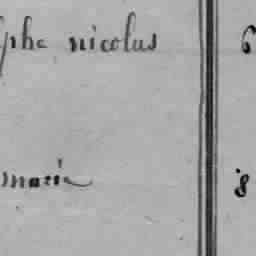 phe nicolus 6
maria 8